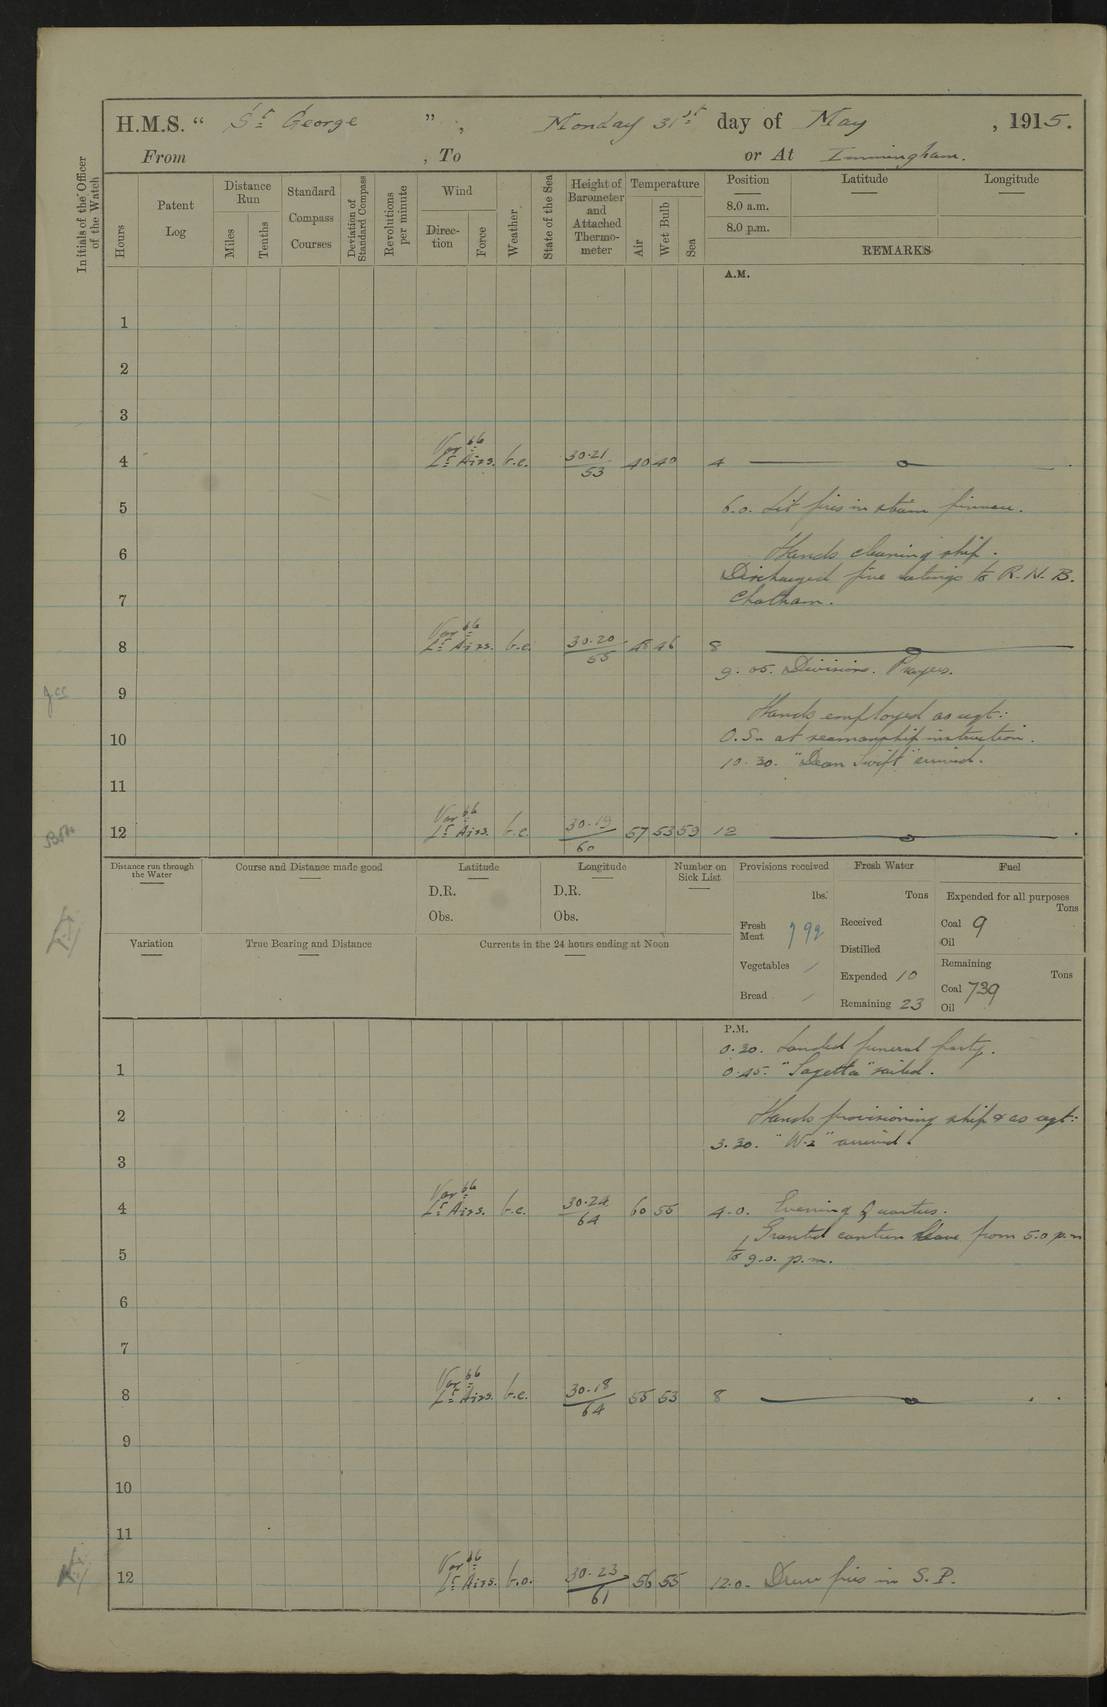 H.M.S. “ St George ” , Monday 31st day of May , 1915.
From , To or At Immingham.
Initials of the Officer of the Watch
Hours
Patent Log
Distance Run
Miles
Tenths
Standard Compass Courses
Deviation of Standard Compass
Revolutions per minute
Wind
Direction
Force
Weather
State of the Sea
Height of Barometer and Attached Thermometer
Temperature
Air
Wet Bulb
Sea
Position Latitude Longitude
8.0 a.m.
8.0 p.m.
REMARKS
A.M.
1
2
3
4 Var ble Lt Airs. b.c. 30.21 53 40 40 4
5 6.0. Lit fires in steam pinnace.
6 Hands cleaning ship.
Discharged five ratings to R.N.B.
7 Chatham.
8 Var ble Lt Airs. b.c. 30.20 55 48 46 8
9.05. Divisions. Prayers.
9
Hands employed as reqt:
10 O.Sn at seamanship instruction.
10.30. "Dean Swift" arrived.
11
12 Var ble Lt Airs. b.c. 30.19 60 57 53 53 12
Distance run through the Water
Course and Distance made good
Latitude
D.R.
Obs.
Longitude
D.R.
Obs.
Number on Sick List
Provisions received
lbs.
Fresh Meat 792
Vegetables /
Bread /
Fresh Water
Tons
Received
Distilled
Expended 10
Remaining 23
Fuel
Expended for all purposes
Tons
Coal 9
Oil
Remaining
Tons
Coal 739
Oil
Variation
True Bearing and Distance
Currents in the 24 hours ending at Noon
P.M.
0.20. Landed funeral party.
1 0.45. "Sagetta" sailed.
2 Hands provisioning ship & as reqt:
3.30. arrived.
3
4 Var ble Lt Airs. b.c. 30.24 64 60 55 4.0. Evening Quarters.
Granted canteen leave from 5.0 p.m
5 to 9.0. p.m.
6
7
8 Var ble Lt Airs. b.c. 30.18 64 55 53 8
9
10
11
12 Var ble Lt Airs. b.c. 30.23 61 56 55 12.0. Drew fires in S.P.